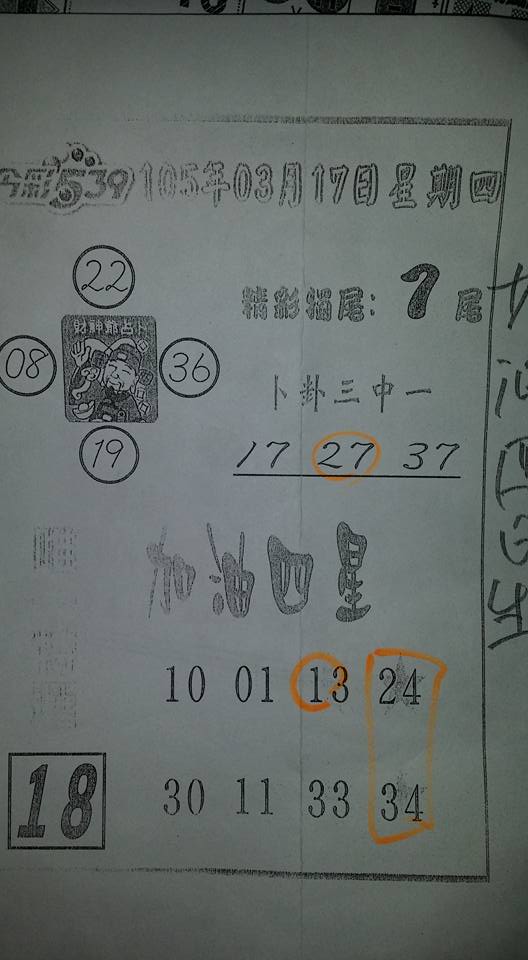 今彩539 105年03月17日星期四
22
精彩獨尾: 7 尾
財神爺占卜
08
36
卜卦三中一
19
17 27 37
10 01 13 24
30 11 33 34
18